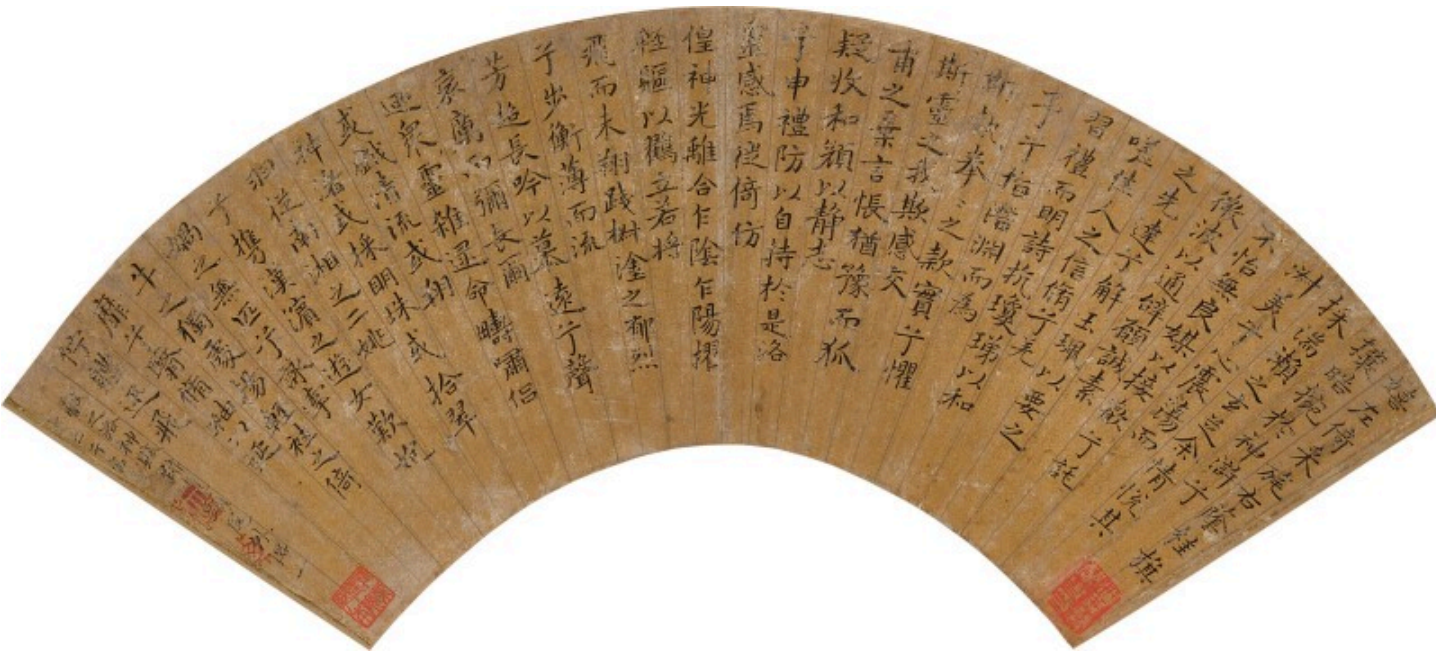 嬉左倚采旄右蔭桂旗
攘皓腕於神滸兮
採湍瀨之玄芝余情悅其
淋美兮心震蕩而
不怡無良媒以接歡兮託
微波以通辭願誠素
之先達兮解玉珮以要之
嗟佳人之信脩兮羌
習禮而明詩抗瓊珶以和
予兮指潛淵而為
斯執拳〻之款實兮懼
斯靈之我欺感交
甫之棄言悵猶豫而狐
疑收和顏以靜志
兮申禮防以自持於是洛
靈感焉徙倚仿
偟神光離合乍陰乍陽擢
輕軀以鶴立若將
飛而未翔踐椒塗之郁烈
兮步衡薄而流
芳超長吟以慕遠兮聲
哀厲而彌長爾
迺衆靈雜遝命疇嘯侶
或戲清流或翔
神渚或採明珠或拾翠
羽從南湘之二姚
兮攜漢濱之遊女歎炰
媧之無匹兮詠牽
牛之獨處揚輕袿之倚
靡兮翳脩袖以延
佇體迅飛